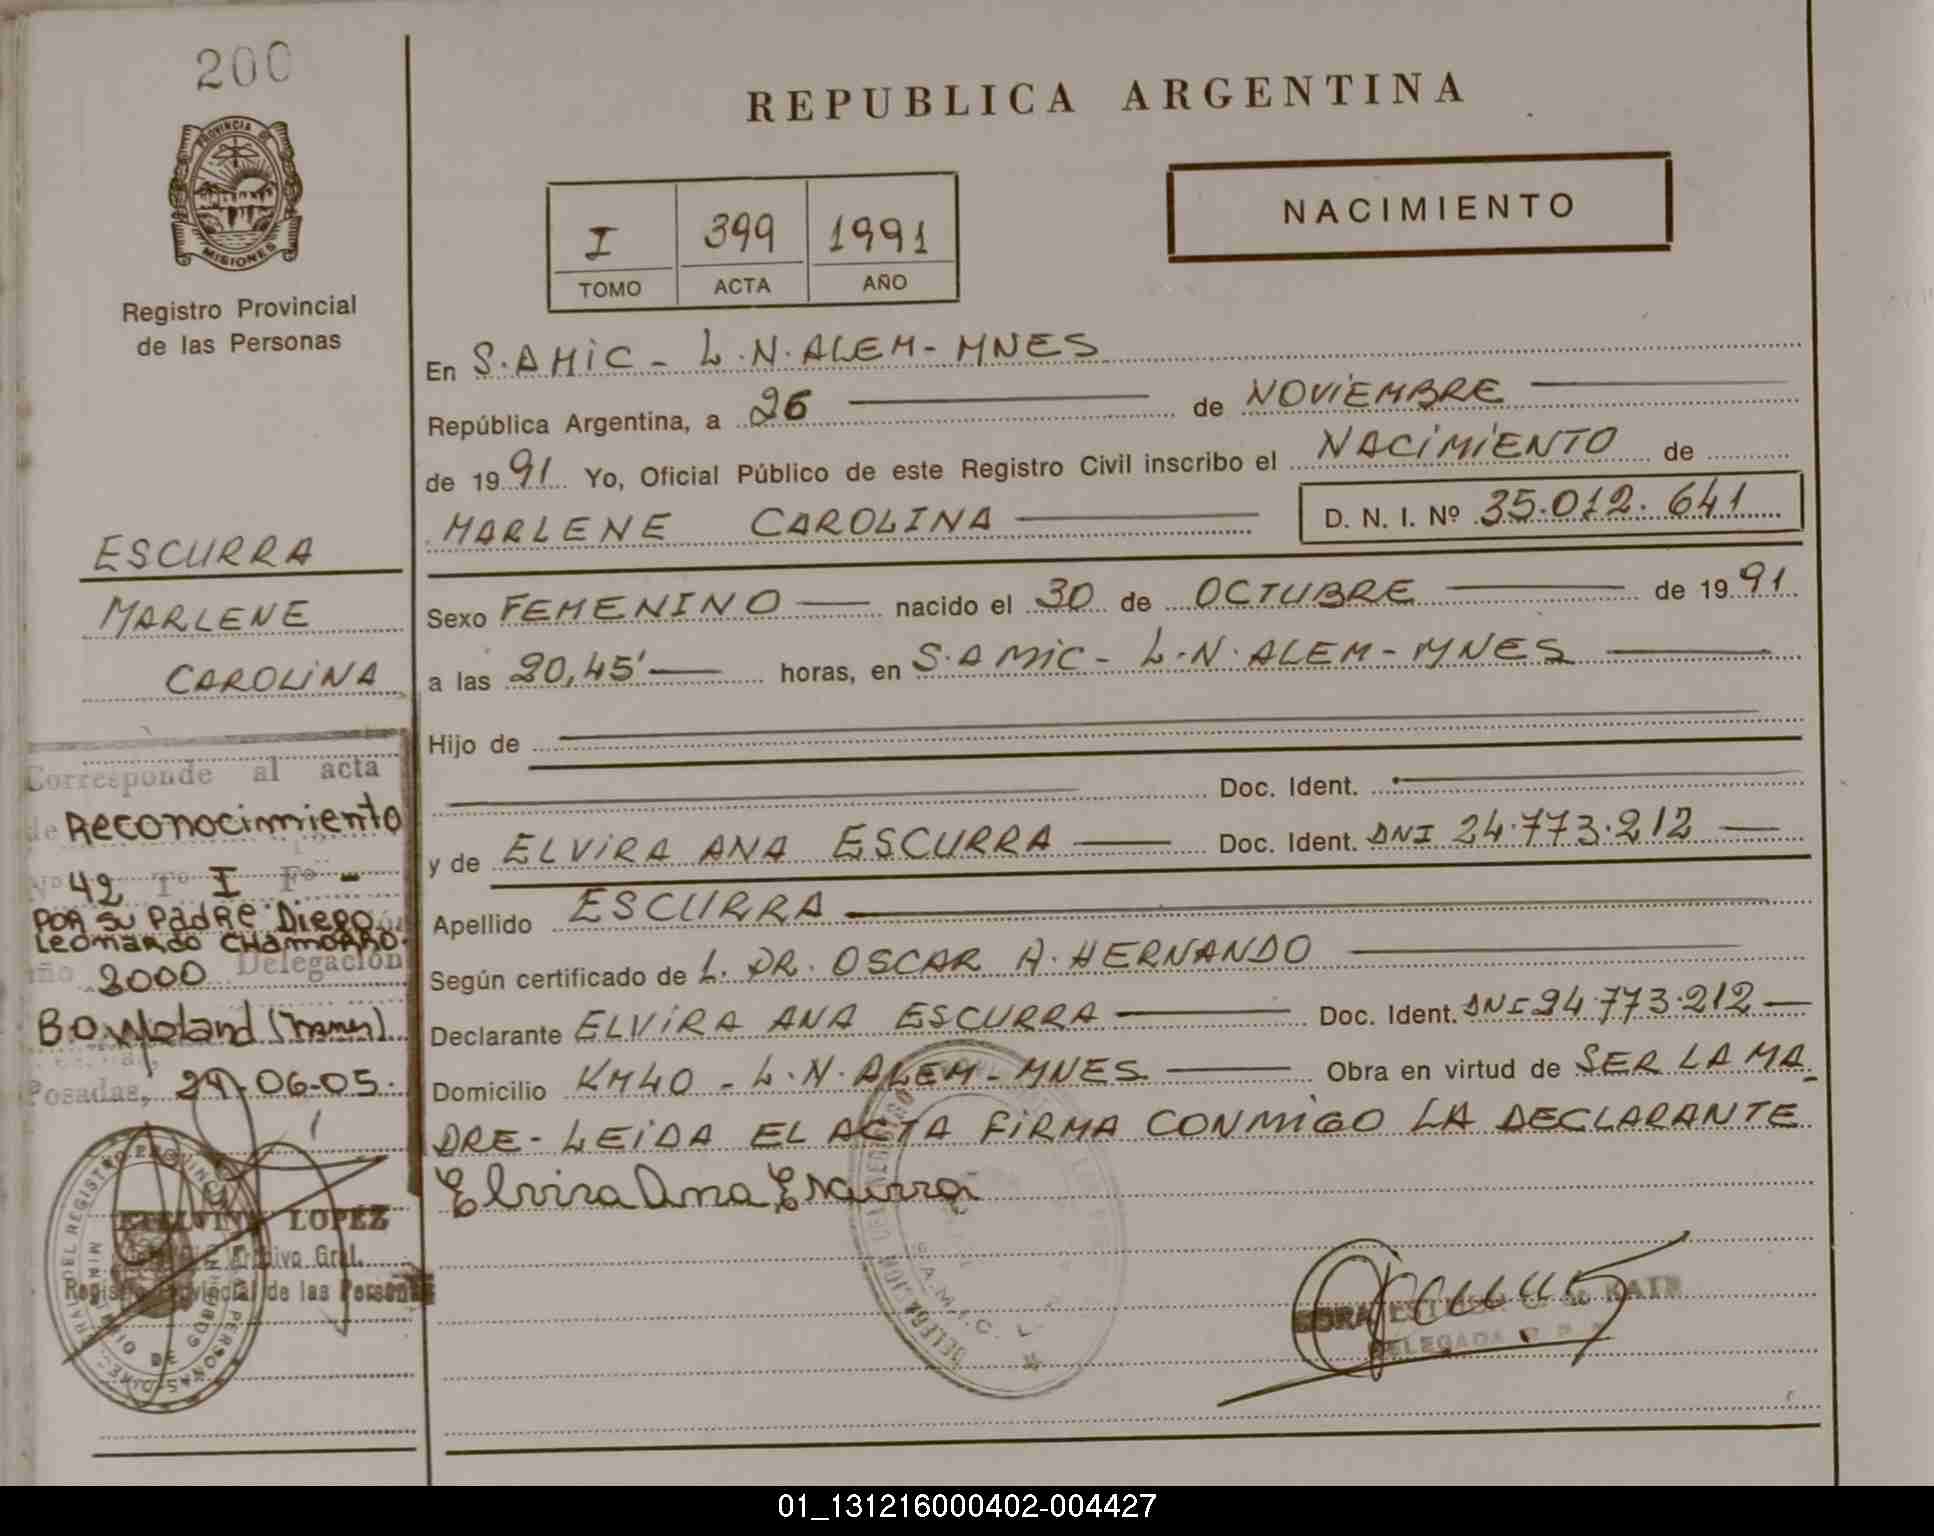 200
PROVINCIA DE
MISIONES
Registro Provincial
de las Personas
ESCURRA
MARLENE
CAROLINA
Corresponde al acta
de Reconocimiento
Nº 42 Tº I Fº -
POR SU PADRE DIEGO
Leonardo CHAMORRO.
año 2000 Delegación
B.O.
Posadas, 29-06-05.
LOPEZ
Archivo Gral.
Registro Provincial de las Personas
REPUBLICA ARGENTINA
NACIMIENTO
I 399 1991
TOMO ACTA AÑO
En S.AMIC - L.N.ALEM - MNES
República Argentina, a 26 de NOVIEMBRE
de 1991 Yo, Oficial Público de este Registro Civil inscribo el NACIMIENTO de
MARLENE CAROLINA D. N. I. Nº 35.012.641
Sexo FEMENINO nacido el 30 de OCTUBRE de 1991
a las 20,45' horas, en S.AMIC - L.N.ALEM - MNES
Hijo de
Doc. Ident.
y de ELVIRA ANA ESCURRA Doc. Ident. DNI 24.773.212
Apellido ESCURRA
Según certificado de L. DR. OSCAR A. HERNANDO
Declarante ELVIRA ANA ESCURRA Doc. Ident. DNI 24.773.212
Domicilio KM40 - L.N.ALEM - MNES Obra en virtud de SER LA MA-
DRE - LEIDA EL ACTA FIRMA CONMIGO LA DECLARANTE
Elvira Ana Escurra
DELEGADA R.P.
01_131216000402-004427